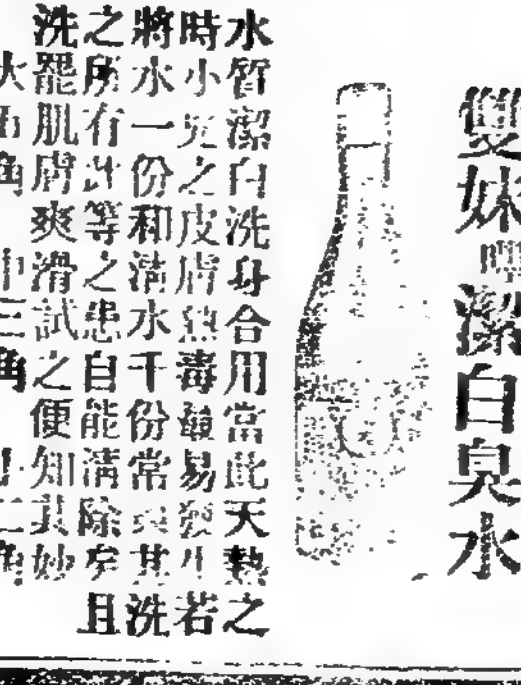 雙妹嘜潔白臭水
水質潔白洗身合用當此天熱之
時小兒之皮膚熱毒最易發生若
將水一份和清水千份常與其洗
之所有此等之患自能清除矣且
洗罷肌膚爽滑試之便知其妙
大五角 中三角 二角